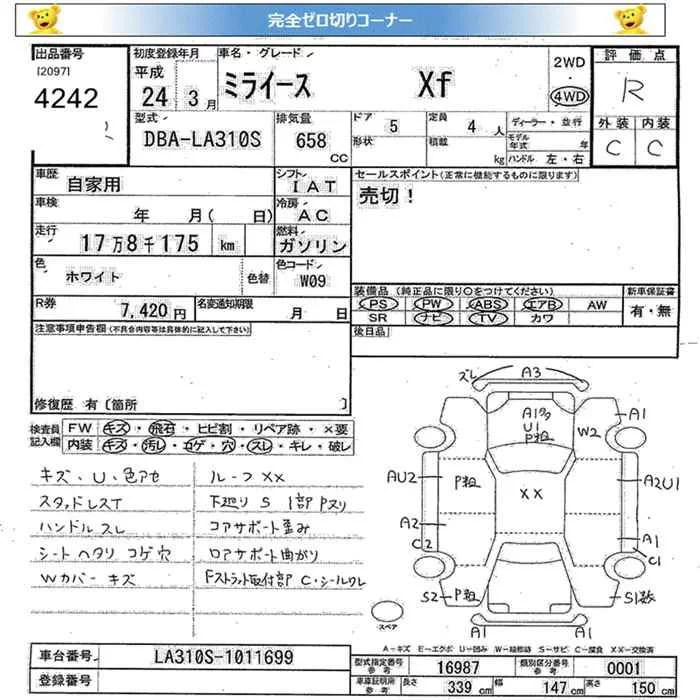 完全ゼロ切りコーナー
出品番号 初度登録年月 車名・グレード 評価点
[2097] 平成 ミライース Xf 2WD
4242 24 3月 ・ 4WD R
型式 排気量 ドア 5 定員 4人 ディーラー・並行 外装 内装
DBA-LA310S 658 CC 形状 積載 kg モデル年式 年 ハンドル 左・右 C C
車歴 自家用 シフト IAT セールスポイント(正常に機能するものに限ります)
車検 年 月( 日) 冷房 AC 売切!
走行 17万8千175 km 燃料 ガソリン
色 ホワイト 色替 色コード W09
装備品(純正品に限り○をつけてください) 新車保証書
R券 7,420円 名変通知期限 月 日 PS PW ABS エアB AW 有・無
SR ナビ TV カワ
注意事項申告欄(不具合内容等は具体的に記入して下さい) 後日品
修復歴 有〔箇所 〕
検査員記入欄 FW キズ・飛石・ヒビ割・リペア跡・×要
内装 キズ・汚レ・コゲ・穴・スレ・キレ・破レ
キズ、U、色アセ ルーフXX
スタッドレスT 下廻りS 1部Pヌリ
ハンドルスレ コアサポート歪み
シートヘタリ コゲ穴 ロアサポート曲がり
Wカバーキズ Fストラット取付部C・シールワレ
ズレ A3
A1多 A1
U1
P粗 W2
AU2 P粗 XX A2U1
A2 A1
C2 C1
S2 P粗 S1数
スペア A1 A1
A-キズ E-エクボ U-凹み W-補修跡 S-サビ C-腐食 XX-交換済
車台番号 LA310S-1011699
型式指定番号 参考 16987 類別区分番号 参考 0001
登録番号 車庫証明用 参考 長さ 339cm 幅 147cm 高さ 150cm